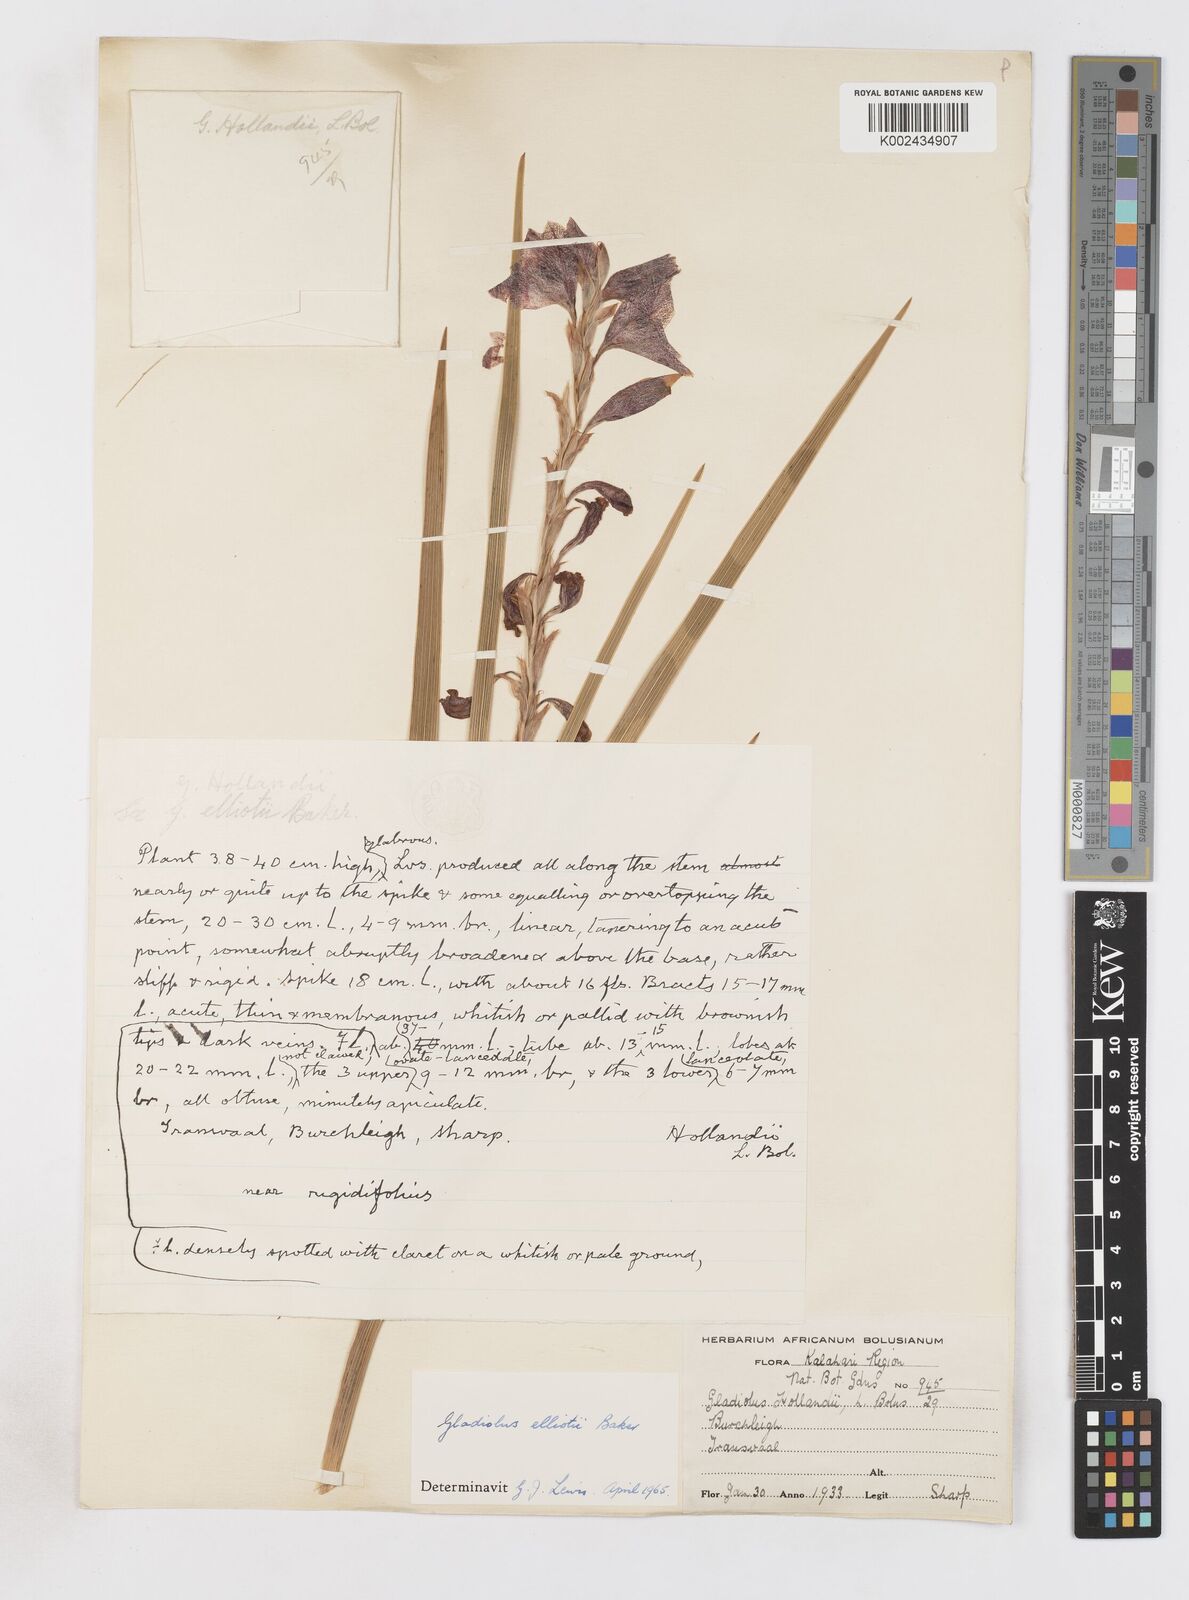 P
ROYAL BOTANIC GARDENS KEW
K002434907
G. Hollandii, L. Bol.
945/29
G. Hollandii
G. elliotii Baker.
glabrous.
Plant 38-40 cm. high, Lvs. produced all along the stem almost
nearly or quite up to the spike & some equalling or overtopping the
stem, 20-30 cm. l., 4-9 mm. br., linear, tapering to an acute
point, somewhat abruptly broadened above the base, rather
stiff & rigid. Spike 18 cm. l., with about 16 fls. Bracts 15-17 mm
l., acute, thin & membranous, whitish or pallid with brownish
tips & dark veins. Fl. ab. 37-40 mm. l. - tube ab. 13-15 mm. l., lobes ab.
20-22 mm. l., not clawed, the 3 upper ovate-lanceolate, 9-12 mm. br, & the 3 lower lanceolate, 6-7 mm
br, all obtuse, minutely apiculate.
Transvaal, Burchleigh, Sharp.
Hollandii
L. Bol.
near rigidifolius
Fl. densely spotted with claret on a whitish or pale ground,
HERBARIUM AFRICANUM BOLUSIANUM
FLORA Kalahari Region
Nat. Bot Gdns No 945/29
Gladiolus Hollandii, L. Bolus
Burchleigh
Transvaal
Alt.
Flor. Jan 30 Anno 1933 Legit Sharp
Gladiolus elliotii Baker
Determinavit G. J. Lewis. April 1965.
inches
centimetres
Density
Don Williams
M000827
Royal Botanic Gardens
Kew
0 1 2 3 4 5 6 7 8 9 10
cm